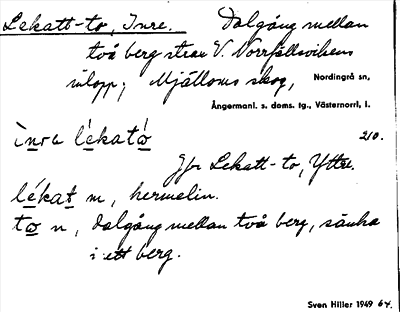 Lekatt-to, Inre. Dalgång mellan
två berg strax V. Norrfällsvikens
inlopp, Mjälloms skog, Nordingrå sn,
Ångermanl. s. doms. tg., Västernorrl. l.
ìnra lékatò 210.
Jfr Lekatt-to, Yttre.
lékat m, hermelin.
to n, dalgång mellan två berg, sänka
i ett berg.
Sven Hiller 1949 64.